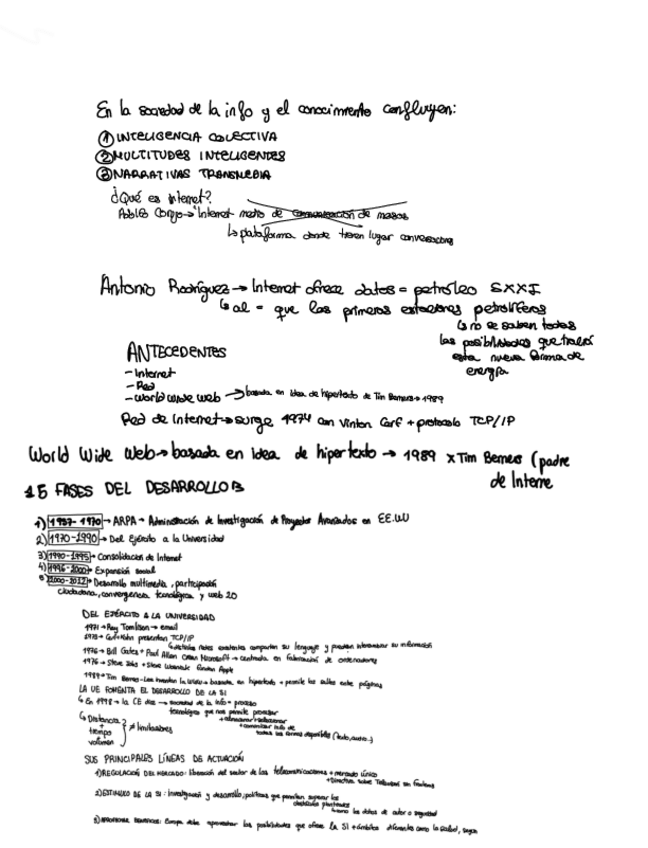 En la sociedad de la info y el conocimiento confluyen:
① INTELIGENCIA COLECTIVA
② MULTITUDES INTELIGENTES
③ NARRATIVAS TRANSMEDIA
¿Qué es internet?
Internet medio de comunicación de masas
↳ plataforma donde tienen lugar conversaciones
Antonio Rodríguez → Internet ofrece datos = petróleo SXXI
↳ al = que las primeras extracciones petrolíferas
↳ no se saben todas
las posibilidades que traerá
esta nueva forma de
energía
ANTECEDENTES
- Internet
- Red
- World Wide Web → basada en idea de hipertexto de Tim Berners → 1989
Red de Internet → surge 1974 con Vinton Cerf + protocolo TCP/IP
World Wide Web → basada en idea de hipertexto → 1989 x Tim Berners (padre
de Interne
5 FASES DEL DESARROLLO
1) → ARPA → Administración de Investigación de Proyectos Avanzados en EE.UU
2) 1970-1990 → Del Ejército a la Universidad
3) 1990-1995 → Consolidación de Internet
4) 1995-2000 → Expansión social
5) 2000-2012 → Desarrollo multimedia, participación
ciudadana, convergencia tecnológica y web 2.0
DEL EJÉRCITO A LA UNIVERSIDAD
1971 → Ray Tomlinson → email
presentan TCP/IP
redes existentes comparten su lenguaje y puedan intercambiar su información
1976 → Bill Gates + Paul Allen crean Microsoft → centrada en fabricación de ordenadores
1976 → Steve Jobs + Steve Wozniak fundan Apple
1989 → Tim Berners-Lee inventa la www → basada en hipertexto + permite los saltos entre páginas
LA UE FOMENTA EL DESARROLLO DE LA SI
↳ En 1998 → la CE dice → sociedad de la info = proceso
tecnológico que nos permite procesar
+ almacenar
+ comunicar info de
todas las formas disponibles (texto, audio..)
↳ Distancia
+
tiempo
+
volumen
≠ limitadores
SUS PRINCIPALES LÍNEAS DE ACTUACIÓN
1) REGULACIÓN DEL MERCADO: liberación del sector de las telecomunicaciones + mercado único
+ Directiva sobre Televisión sin fronteras
2) ESTÍMULO DE LA SI: Investigación y desarrollo, políticas que permitan superar los
obstáculos planteados
como los datos de autor o seguridad
3) Europa debe aprovechar las posibilidades que ofrece la SI + ámbitos diferentes como la salud,